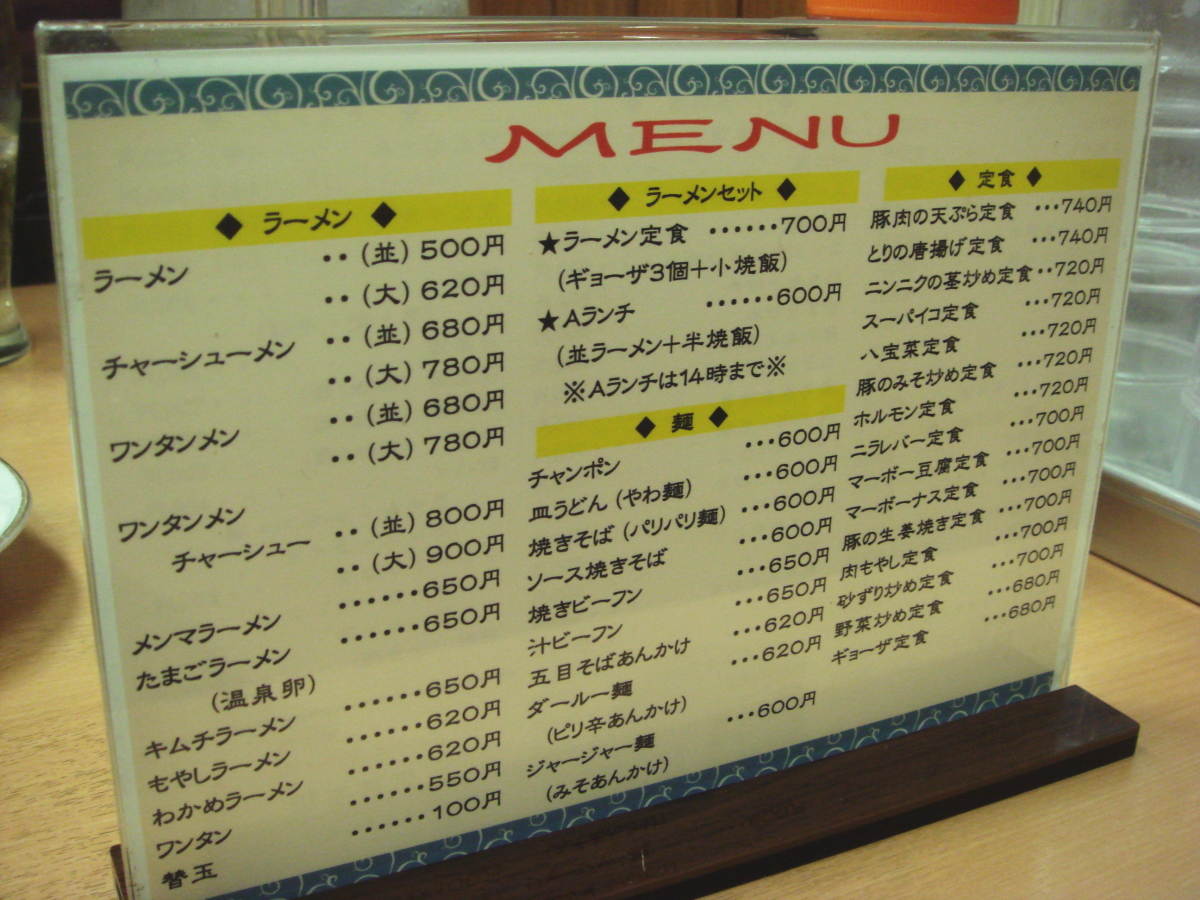 MENU
◆ ラーメン ◆
ラーメン ‥(並)500円
‥(大)620円
チャーシューメン ‥(並)680円
‥(大)780円
ワンタンメン ‥(並)680円
‥(大)780円
ワンタンメン
チャーシュー ‥(並)800円
‥(大)900円
メンマラーメン ……650円
たまごラーメン ……650円
(温泉卵)
キムチラーメン ……650円
もやしラーメン ……620円
わかめラーメン ……620円
ワンタン ……550円
替玉 ……100円
◆ ラーメンセット ◆
★ラーメン定食 ……700円
(ギョーザ3個+小焼飯)
★Aランチ ……600円
(並ラーメン+半焼飯)
※Aランチは14時まで※
◆ 麺 ◆
チャンポン …600円
皿うどん(やわ麺) …600円
焼きそば(パリパリ麺) …600円
ソース焼きそば …600円
焼きビーフン …650円
汁ビーフン …650円
五目そばあんかけ …620円
ダールー麺 …620円
(ピリ辛あんかけ)
ジャージャー麺 …600円
(みそあんかけ)
◆ 定食 ◆
豚肉の天ぷら定食 …740円
とりの唐揚げ定食 …740円
ニンニクの茎炒め定食‥720円
スーパイコ定食 …720円
八宝菜定食 …720円
豚のみそ炒め定食 …720円
ホルモン定食 …720円
ニラレバー定食 …700円
マーボー豆腐定食 …700円
マーボーナス定食 …700円
豚の生姜焼き定食 …700円
肉もやし定食 …700円
砂ずり炒め定食 …700円
野菜炒め定食 …680円
ギョーザ定食 …680円